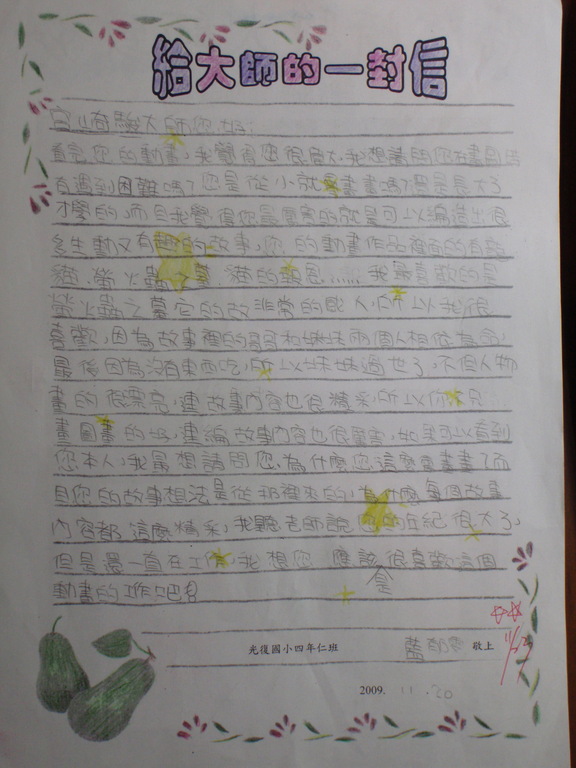 給大師的一封信
宮崎駿大師您好:
看完您的動畫,我覺得您很偉大,我想請問您在畫圖時
有遇到困難嗎?您是從小就畫畫嗎?還是長大了
才學的,而且我覺得您最厲害的就是可以編造出很
多生動又有趣的故事,您的動畫作品裡面的有龍
貓、螢火蟲之墓、貓的報恩……我最喜歡的是
螢火蟲之墓它的故非常的感人,所以我很
喜歡,因為故事裡的哥哥和妹妹兩個人相依為命,
最後因為沒有東西吃,所以妹妹過世了,不但人物
畫的很漂亮,連故事內容也很精采,所以你不只
畫圖畫的好,連編故事內容也很厲害,如果可以看到
您本人,我最想請問您,為什麼您這麼會畫畫?而
且您的故事想法是從那裡來的,為什麼每個故事
內容都這麼精采,我聽老師說您的年紀很大了,
但是還一直在工作,我想您應該是很喜歡這個
動畫的工作吧!
光復國小四年仁班 藍 敬上
2009. 11.20